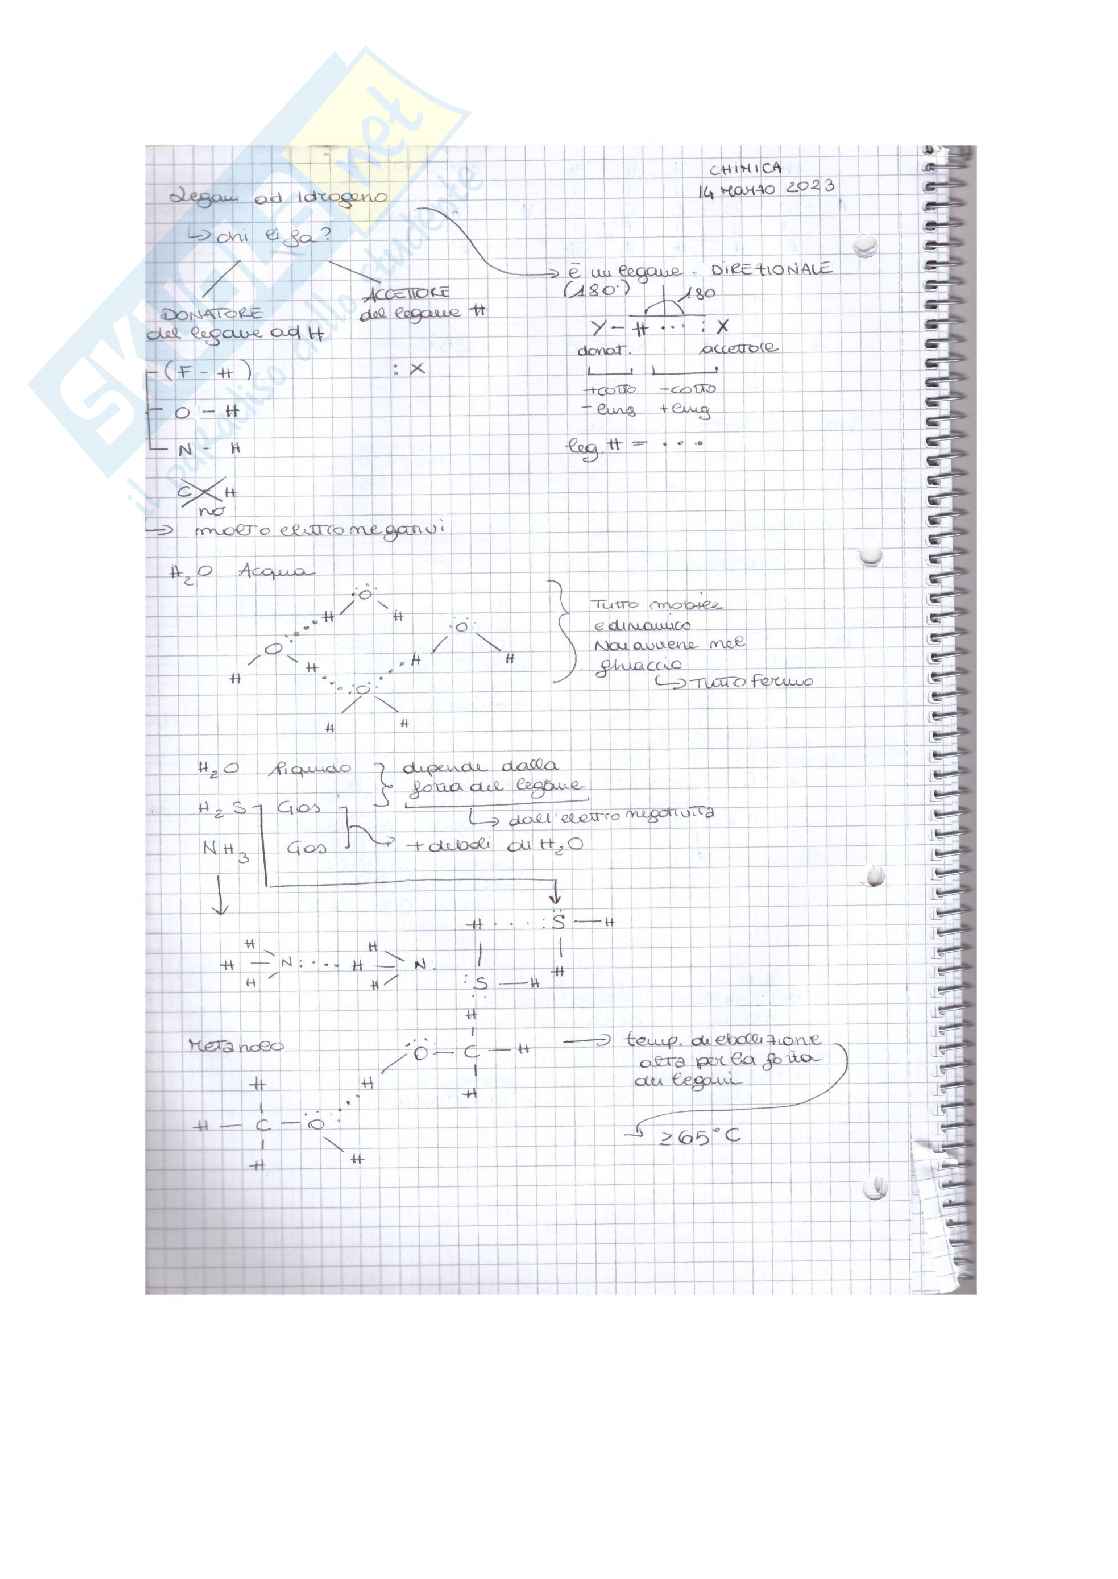 CHIMICA
14 Marzo 2023
Legami ad Idrogeno
→ chi li fa?
→ è un legame DIREZIONALE
(180°)
180
DONATORE
del legame ad H
ACCETTORE
del legame H
Y - H ··· : X
donat. accettore
+ corto - corto
- lung + lung
leg H = ···
(F - H)
: X
O - H
N - H
C H
no
→ molto elettronegativi
H2O Acqua
O
H H
O
H H
O
H H
O
H H
Tutto mobile
e dinamico
Non avviene nel
ghiaccio
↳ Tutto fermo
H2O liquido
dipende dalla
forza del legame
↳ dall'elettronegatività
H2S Gas
NH3 Gas
→ + deboli di H2O
H ···· :S - H
H
:S - H
H
H - N: ···· H - N
H H
H H
Metanolo
H
O - C - H
H
H
→ temp. di ebollizione
alta per la forza
dei legami
→ ≥65°C
H
H - C - O
H H
SKUOLA.net
il paradiso dello studente